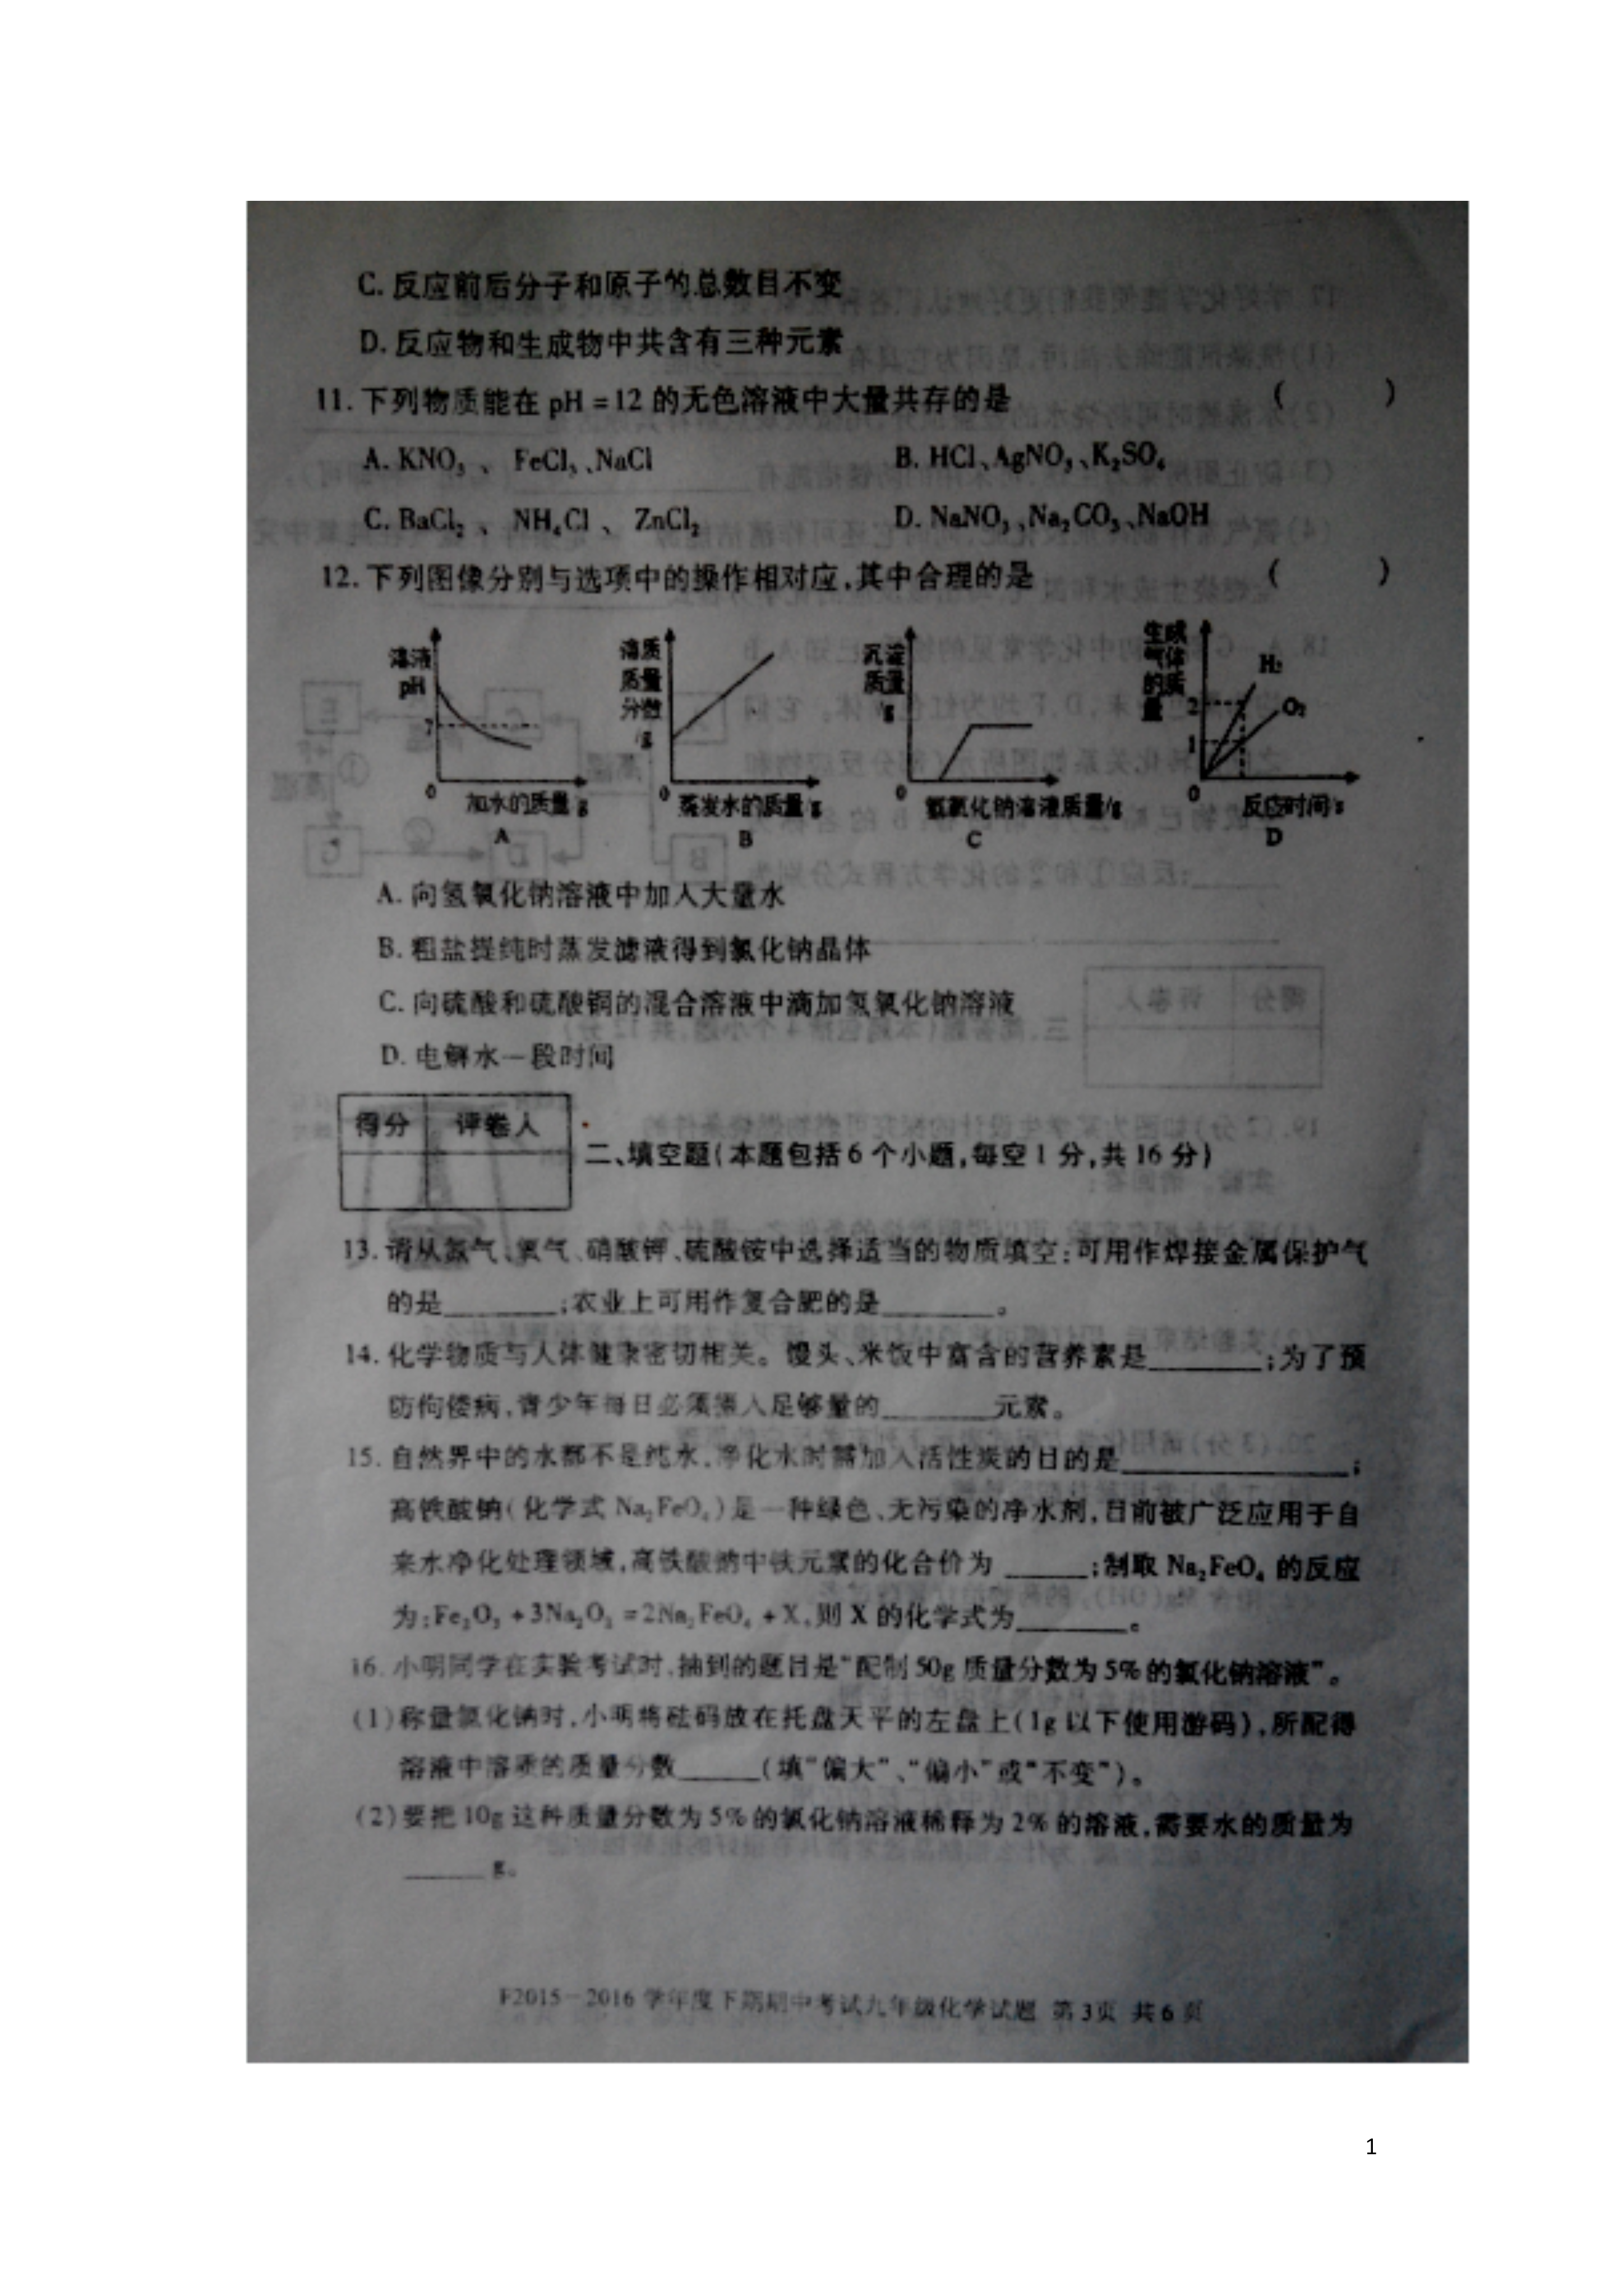 C. 反应前后分子和原子的总数目不变
D. 反应物和生成物中共含有三种元素
11. 下列物质能在 pH =12 的无色溶液中大量共存的是 ( )
A. KNO₃ 、 FeCl₃ 、NaCl B. HCl、AgNO₃、K₂SO₄
C. BaCl₂ 、 NH₄Cl 、 ZnCl₂ D. NaNO₃、Na₂CO₃、NaOH
12. 下列图像分别与选项中的操作相对应,其中合理的是 ( )
溶液 pH 7 0 加水的质量/g A
溶质质量分数/g 0 蒸发水的质量/g B
沉淀质量/g 0 氢氧化钠溶液质量/g C
生成气体的质量 2 1 0 H₂ O₂ 反应时间/s D
A. 向氢氧化钠溶液中加入大量水
B. 粗盐提纯时蒸发滤液得到氯化钠晶体
C. 向硫酸和硫酸铜的混合溶液中滴加氢氧化钠溶液
D. 电解水一段时间
得分 评卷人
二、填空题(本题包括6个小题,每空1分,共16分)
13. 请从氮气、氧气、硝酸钾、硫酸铵中选择适当的物质填空:可用作焊接金属保护气
的是______;农业上可用作复合肥的是______。
14. 化学物质与人体健康密切相关。馒头、米饭中富含的营养素是______;为了预
防佝偻病,青少年每日必须摄入足够量的______元素。
15. 自然界中的水都不是纯水,净化水时需加入活性炭的目的是____________;
高铁酸钠(化学式 Na₂FeO₄)是一种绿色、无污染的净水剂,目前被广泛应用于自
来水净化处理领域,高铁酸钠中铁元素的化合价为 ______;制取 Na₂FeO₄ 的反应
为:Fe₂O₃ +3Na₂O₂ =2Na₂FeO₄ +X,则 X 的化学式为______。
16. 小明同学在实验考试时,抽到的题目是“配制50g 质量分数为5%的氯化钠溶液”。
(1)称量氯化钠时,小明将砝码放在托盘天平的左盘上(1g 以下使用游码),所配得
溶液中溶质的质量分数_____(填“偏大”、“偏小”或“不变”)。
(2)要把10g 这种质量分数为5%的氯化钠溶液稀释为2%的溶液,需要水的质量为
_____ g。
F2015－2016 学年度下期期中考试九年级化学试题 第3页 共6页
1